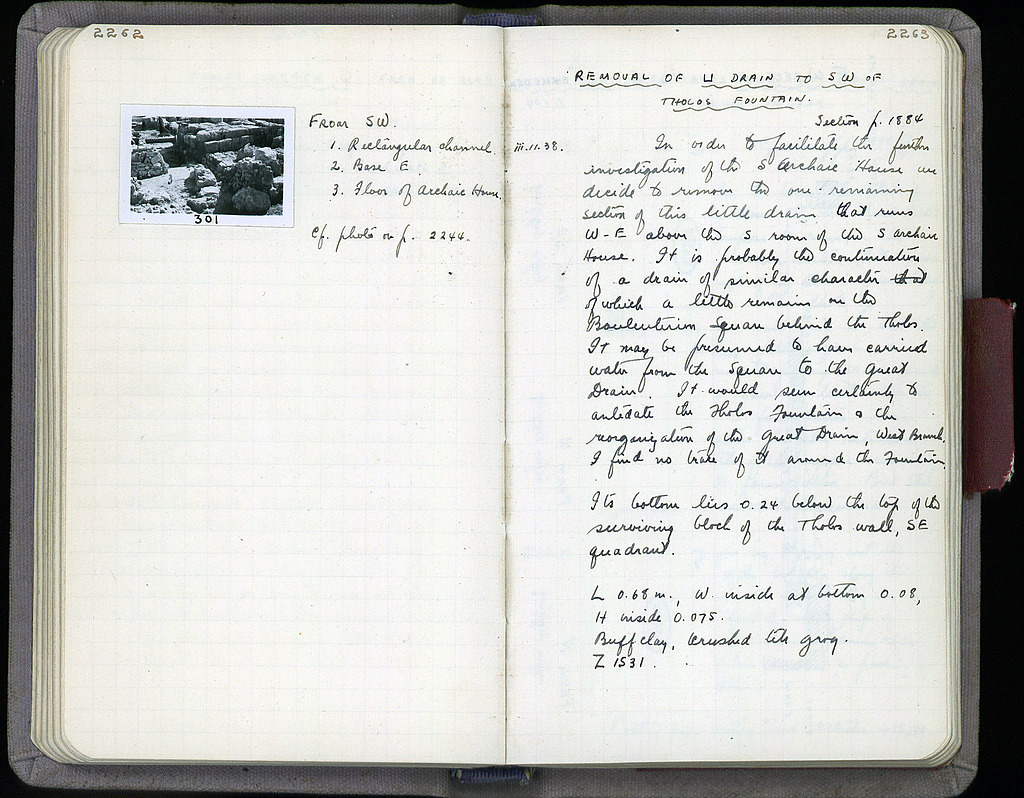 2262
301
From SW.
1. Rectangular channel.
2. Base E
3. Floor of Archaic House.
Cf. photo on p. 2244.
2263
REMOVAL OF U DRAIN TO SW OF
THOLOS FOUNTAIN.
Section p. 1884
iii.11.38. In order to facilitate the further
investigation of the S Archaic House we
decide to remove the one remaining
section of this little drain that runs
W-E above the S room of the S archaic
House. It is probably the continuation
of a drain of similar character that
of which a little remains on the
Bouleuterion Square behind the Tholos.
It may be presumed to have carried
water from the Square to the Great
Drain. It would seem certainly to
antedate the Tholos Fountain & the
reorganization of the Great Drain, West Branch.
I find no trace of it around the Fountain
Its bottom lies 0.24 below the top of the
surviving block of the Tholos wall, SE
quadrant.
L 0.68 m., W. inside at bottom 0.08,
H inside 0.075.
Buff clay, crushed tile grog.
Z 1531.